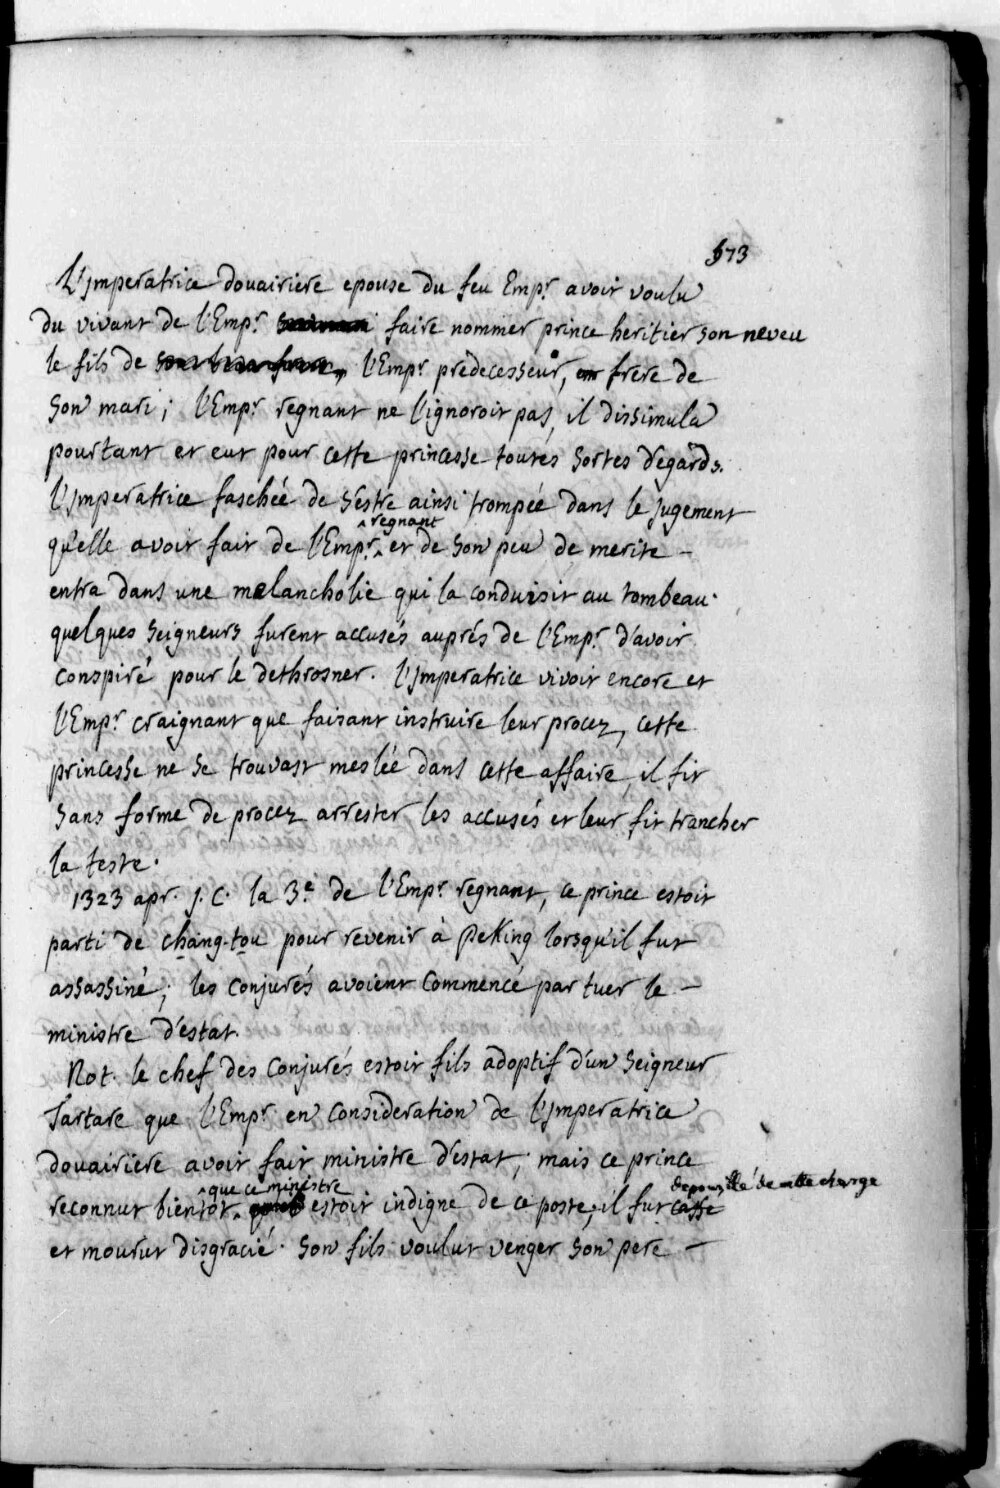 573
L'jmperatrice douairiere epouse du feu Empr. avoit voulu
du vivant de l'Empr. faire nommer prince heritier son neveu
le fils de l'Empr. prédecesseur, frere de
son mari; l'Empr. regnant ne l'ignoroit pas, il dissimula
pourtant et eut pour cette princesse toutes sortes d'egards.
L'jmperatrice faschée de s'estre ainsi trompée dans le jugement
qu'elle avoit fait de l'Empr. regnant et de son peu de merite –
entra dans une melancholie qui la conduisit au tombeau.
quelques seigneurs furent accusés auprés de l'Empr. d'avoir
conspiré pour le dethrosner. l'jmperatrice vivoit encore et
l'Empr. craignant que faisant instruire leur procez, cette
princesse ne se trouvast meslée dans cette affaire, il fit
sans forme de procez arrester les accusés et leur fit trancher
la teste.
1323 apr. j. C. la 3e. de l'Empr. regnant, ce prince estoit
parti de chang-tou pour revenir à PeKing lorsqu'il fut
assassiné; les conjurés avoient commencé par tuer le –
ministre d'estat.
Not. le chef des conjurés estoit fils adoptif d'un seigneur
Tartare que l'Empr. en consideration de l'jmperatrice
douairiere avoit fait ministre d'estat; mais ce prince
reconnut bientot que ce ministre estoit indigne de ce poste, il fut casse depouillé de cette charge
et mourut disgracié. Son fils voulut venger son pere –